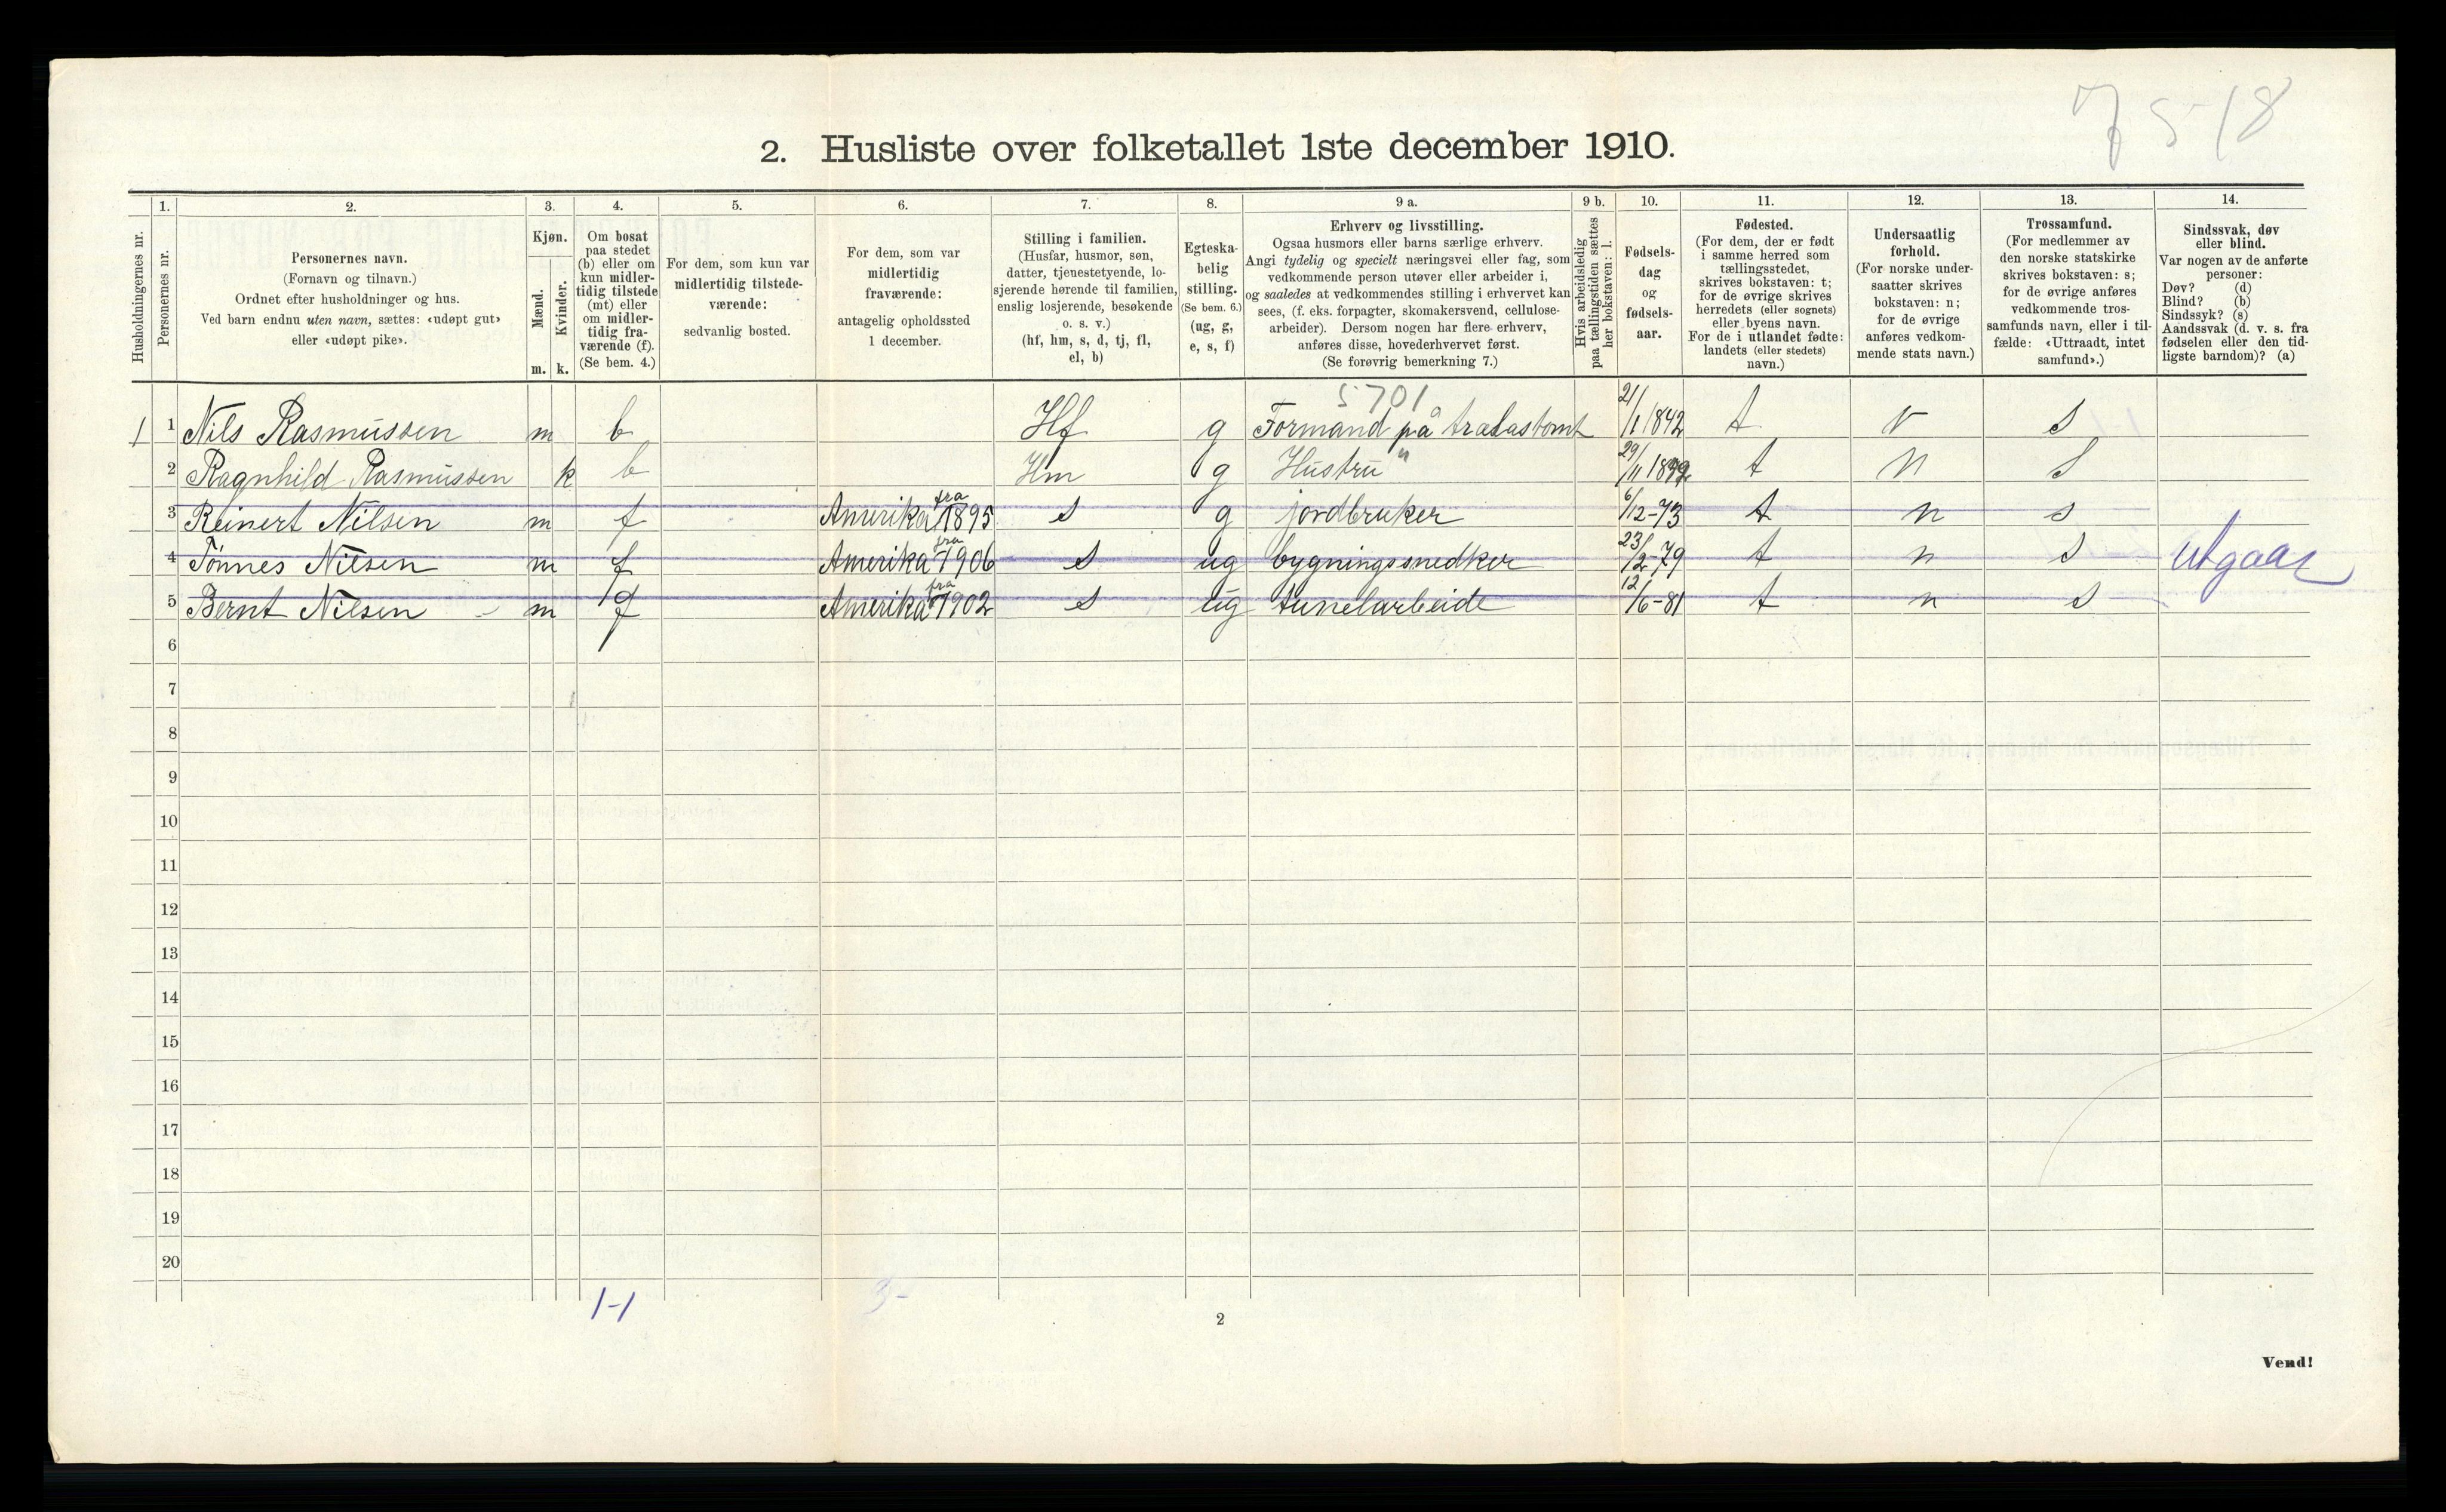 7518
2. Husliste over folketallet 1ste december 1910.
1. 2. 3. 4. 5. 6. 7. 8. 9 a. 9 b. 10. 11. 12. 13. 14.
Husholdningernes nr.
Personernes nr.
Personernes navn.
(Fornavn og tilnavn.)
Ordnet efter husholdninger og hus.
Ved barn endnu uten navn, sættes: «udøpt gut»
eller «udøpt pike».
Kjøn.
Mænd.
Kvinder.
m. k.
Om bosat
paa stedet
(b) eller om
kun midler-
tidig tilstede
(mt) eller
om midler-
tidig fra-
værende (f).
(Se bem. 4.)
For dem, som kun var
midlertidig tilstede-
værende:
sedvanlig bosted.
For dem, som var
midlertidig
fraværende:
antagelig opholdssted
1 december.
Stilling i familien.
(Husfar, husmor, søn,
datter, tjenestetyende, lo-
sjerende hørende til familien,
enslig losjerende, besøkende
o. s. v.)
(hf, hm, s, d, tj, fl,
el, b)
Egteska-
belig
stilling.
(Se bem. 6.)
(ug, g,
e, s, f)
Erhverv og livsstilling.
Ogsaa husmors eller barns særlige erhverv.
Angi tydelig og specielt næringsvei eller fag, som
vedkommende person utøver eller arbeider i,
og saaledes at vedkommendes stilling i erhvervet kan
sees, (f. eks. forpagter, skomakersvend, cellulose-
arbeider). Dersom nogen har flere erhverv,
anføres disse, hovederhvervet først.
(Se forøvrig bemerkning 7.)
Hvis arbeidsledig
paa tællingstiden sættes
her bokstaven: l.
Fødsels-
dag
og
fødsels-
aar.
Fødested.
(For dem, der er født
i samme herred som
tællingsstedet,
skrives bokstaven: t;
for de øvrige skrives
herredets (eller sognets)
eller byens navn.
For de i utlandet fødte:
landets (eller stedets)
navn.)
Undersaatlig
forhold.
(For norske under-
saatter skrives
bokstaven: n;
for de øvrige
anføres vedkom-
mende stats navn.)
Trossamfund.
(For medlemmer av
den norske statskirke
skrives bokstaven: s;
for de øvrige anføres
vedkommende tros-
samfunds navn, eller i til-
fælde: «Uttraadt, intet
samfund».)
Sindssvak, døv
eller blind.
Var nogen av de anførte
personer:
Døv? (d)
Blind? (b)
Sindssyk? (s)
Aandssvak (d. v. s. fra
fødselen eller den tid-
ligste barndom)? (a)
5701
1 1 Nils Rasmussen m b Hf g Formand på trælasttomt 21/1 1842 t n s
2 Ragnhild Rasmussen k b Hm g Hustru " 29/11 t n s
3 Reinert Nilsen m f Amerika fra 1895 s g jordbruker 6/12-73 t n s
4 Tönnes Nilsen m f Amerika fra 1906 s ug bygningssnedker 23/2-79 t n s utgaar
5 Bernt Nilsen m f Amerika fra 1902 s ug tunelarbeide 12/6-81 t n s
6
7
8
9
10
11
12
13
14
15
16
17
18
19
20
1-1 3-
2
Vend!